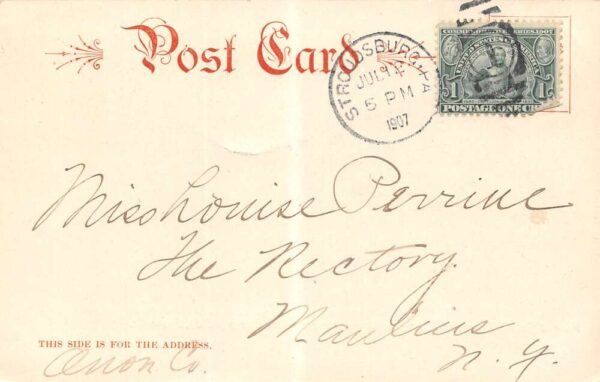 Post Card
STROUDSBURG, PA
JUL
5 PM
1907
COMMEMORATIVE SERIES 1907
UNITED STATES OF AMERICA
1 1
POSTAGE ONE
Miss Louise Perrine
The Rectory.
Manlius
THIS SIDE IS FOR THE ADDRESS.
Onon Co. N. Y.